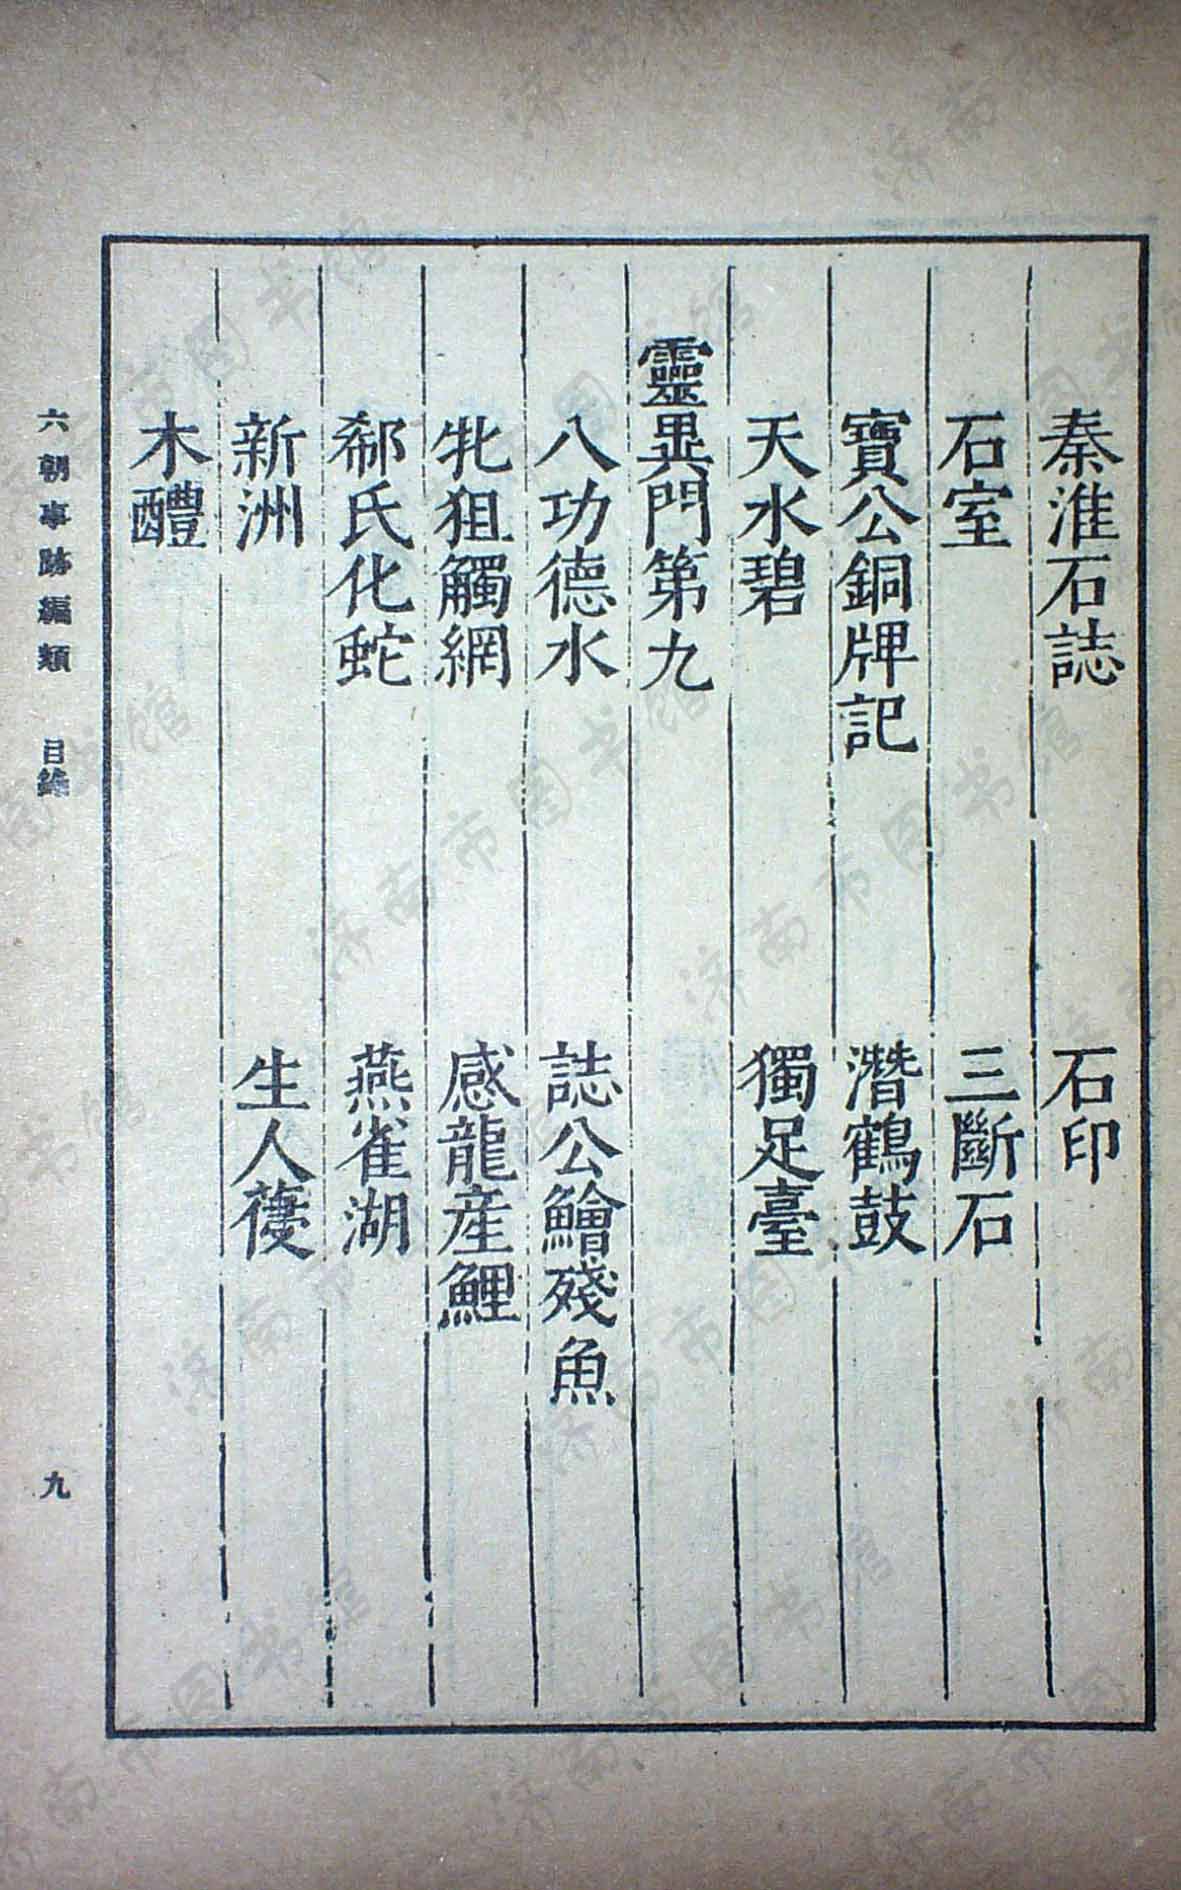 秦淮石誌　石印
石室　三斷石
寶公銅牌記　潛鶴鼓
天水碧　獨足臺
靈異門第九
八功德水　誌公鱠殘魚
牝狙觸網　感龍產鯉
郗氏化蛇　燕雀湖
新洲　生人
木醴
六朝事跡編類　目錄　九
济南市图书馆